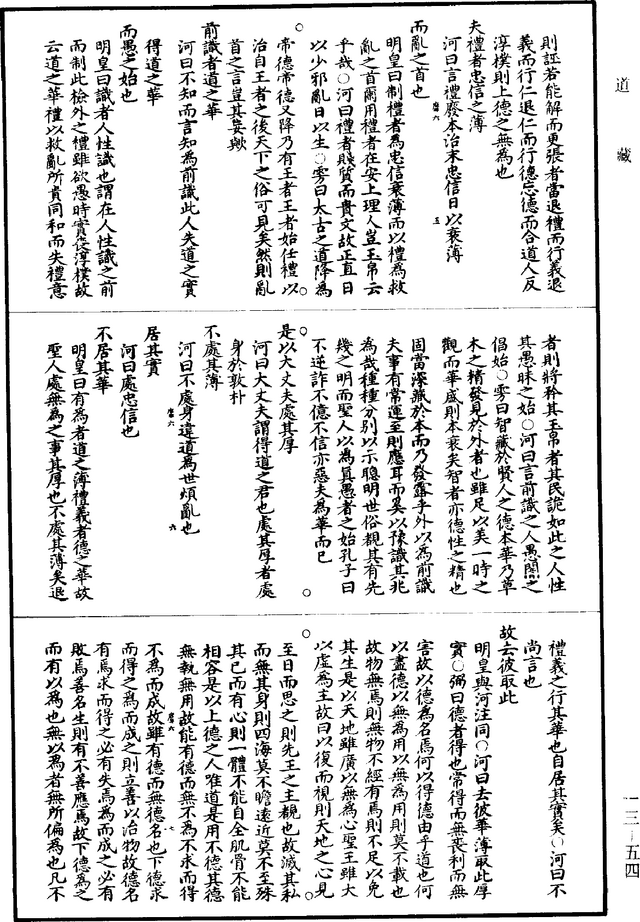 道藏
則誣若能解而更張者當退禮而行義退
義而行仁退仁而行德忘德而合道人反
淳樸則上德之無為也
夫禮者忠信之薄
河曰言禮廢本治末忠信日以衰薄
五
而亂之首也
明皇曰制禮者為忠信衰薄而以禮為救
亂之首爾用禮者在安上理人豈玉帛云
乎哉○河曰禮者賤質而貴文故正直日
以少邪亂日以生○雱曰太古之道降為
帝德帝德又降乃有王者王者始任禮以
治自王者之後天下之俗可見矣然則亂
首之言豈其妄歟
前識者道之華
河曰不知而言知為前識此人失道之實
得道之華
而愚之始也
明皇曰識者人性識也謂在人性識之前
而制此檢外之禮雖欲愚時實喪淳樸故
云道之華禮以救亂所貴同和而失禮意
者則將矜其玉帛者其民詭如此之人性
其愚昧之始○河曰言前識之人愚闇之
倡始○雱曰智藏於賢人之德本華乃草
木之精發見於外者也雖足以美一時之
觀而華盛則本衰矣智者亦德性之精也
固當深藏於本而乃發露乎外以為前識
夫事有常運至則應耳而奚以豫識其兆
為哉種種分別以示聰明世俗覩其有先
幾之明而聖人以為真愚者之始孔子曰
不逆詐不億不信亦惡夫為華而已
是以大丈夫處其厚
河曰大丈夫謂得道之君也處其厚者處
身於敦朴
不處其薄
河曰不處身違道為世煩亂也
六
居其實
河曰處忠信也
不居其華
明皇曰有為者道之薄禮義者德之華故
聖人處無為之事其厚也不處其薄矣退
禮義之行其華也自居其實矣○河曰不
尚言也
故去彼取此
明皇與河注同○河曰去彼華薄取此厚
實○弼曰德者得也常得而無喪利而無
害故以德為名焉何以得德由乎道也何
以盡德以無為用以無為用則莫不載也
故物無焉則無物不經有焉則不足以免
其生是以天地雖廣以無為心聖王雖大
以虛為主故曰以復而視則天地之心見
至日而思之則先王之主覩也故滅其私
而無其身則四海莫不瞻遠近莫不至殊
其己而有心則一體不能自全肌骨不能
相容是以上德之人唯道是用不德其德
無執無用故能有德而無不為不求而得
七
不為而成故雖有德而無德名也下德求
而得之為而成之則立善以治物故德名
有焉求而得之必有失焉為而成之必有
敗焉善名生則有不善應焉故下德為之
而有以為也無以為者無所偏為也凡不
一三—五四